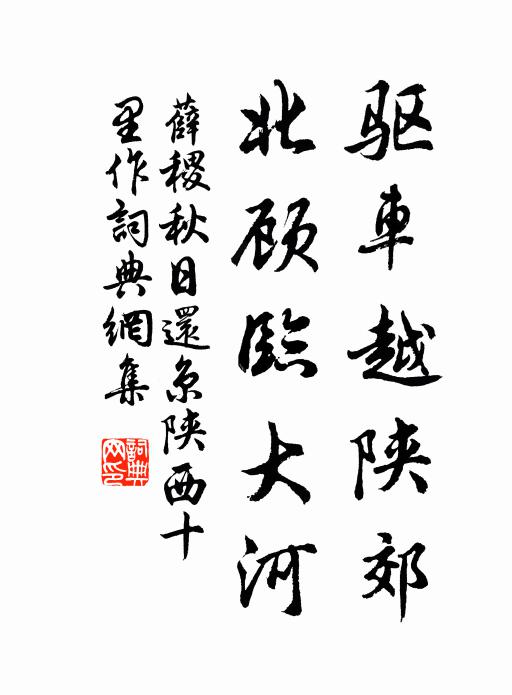 驱車越陕郊
北顾臨大河
薛稷秋日還京陕西十
里作詞典網集
詞典网印